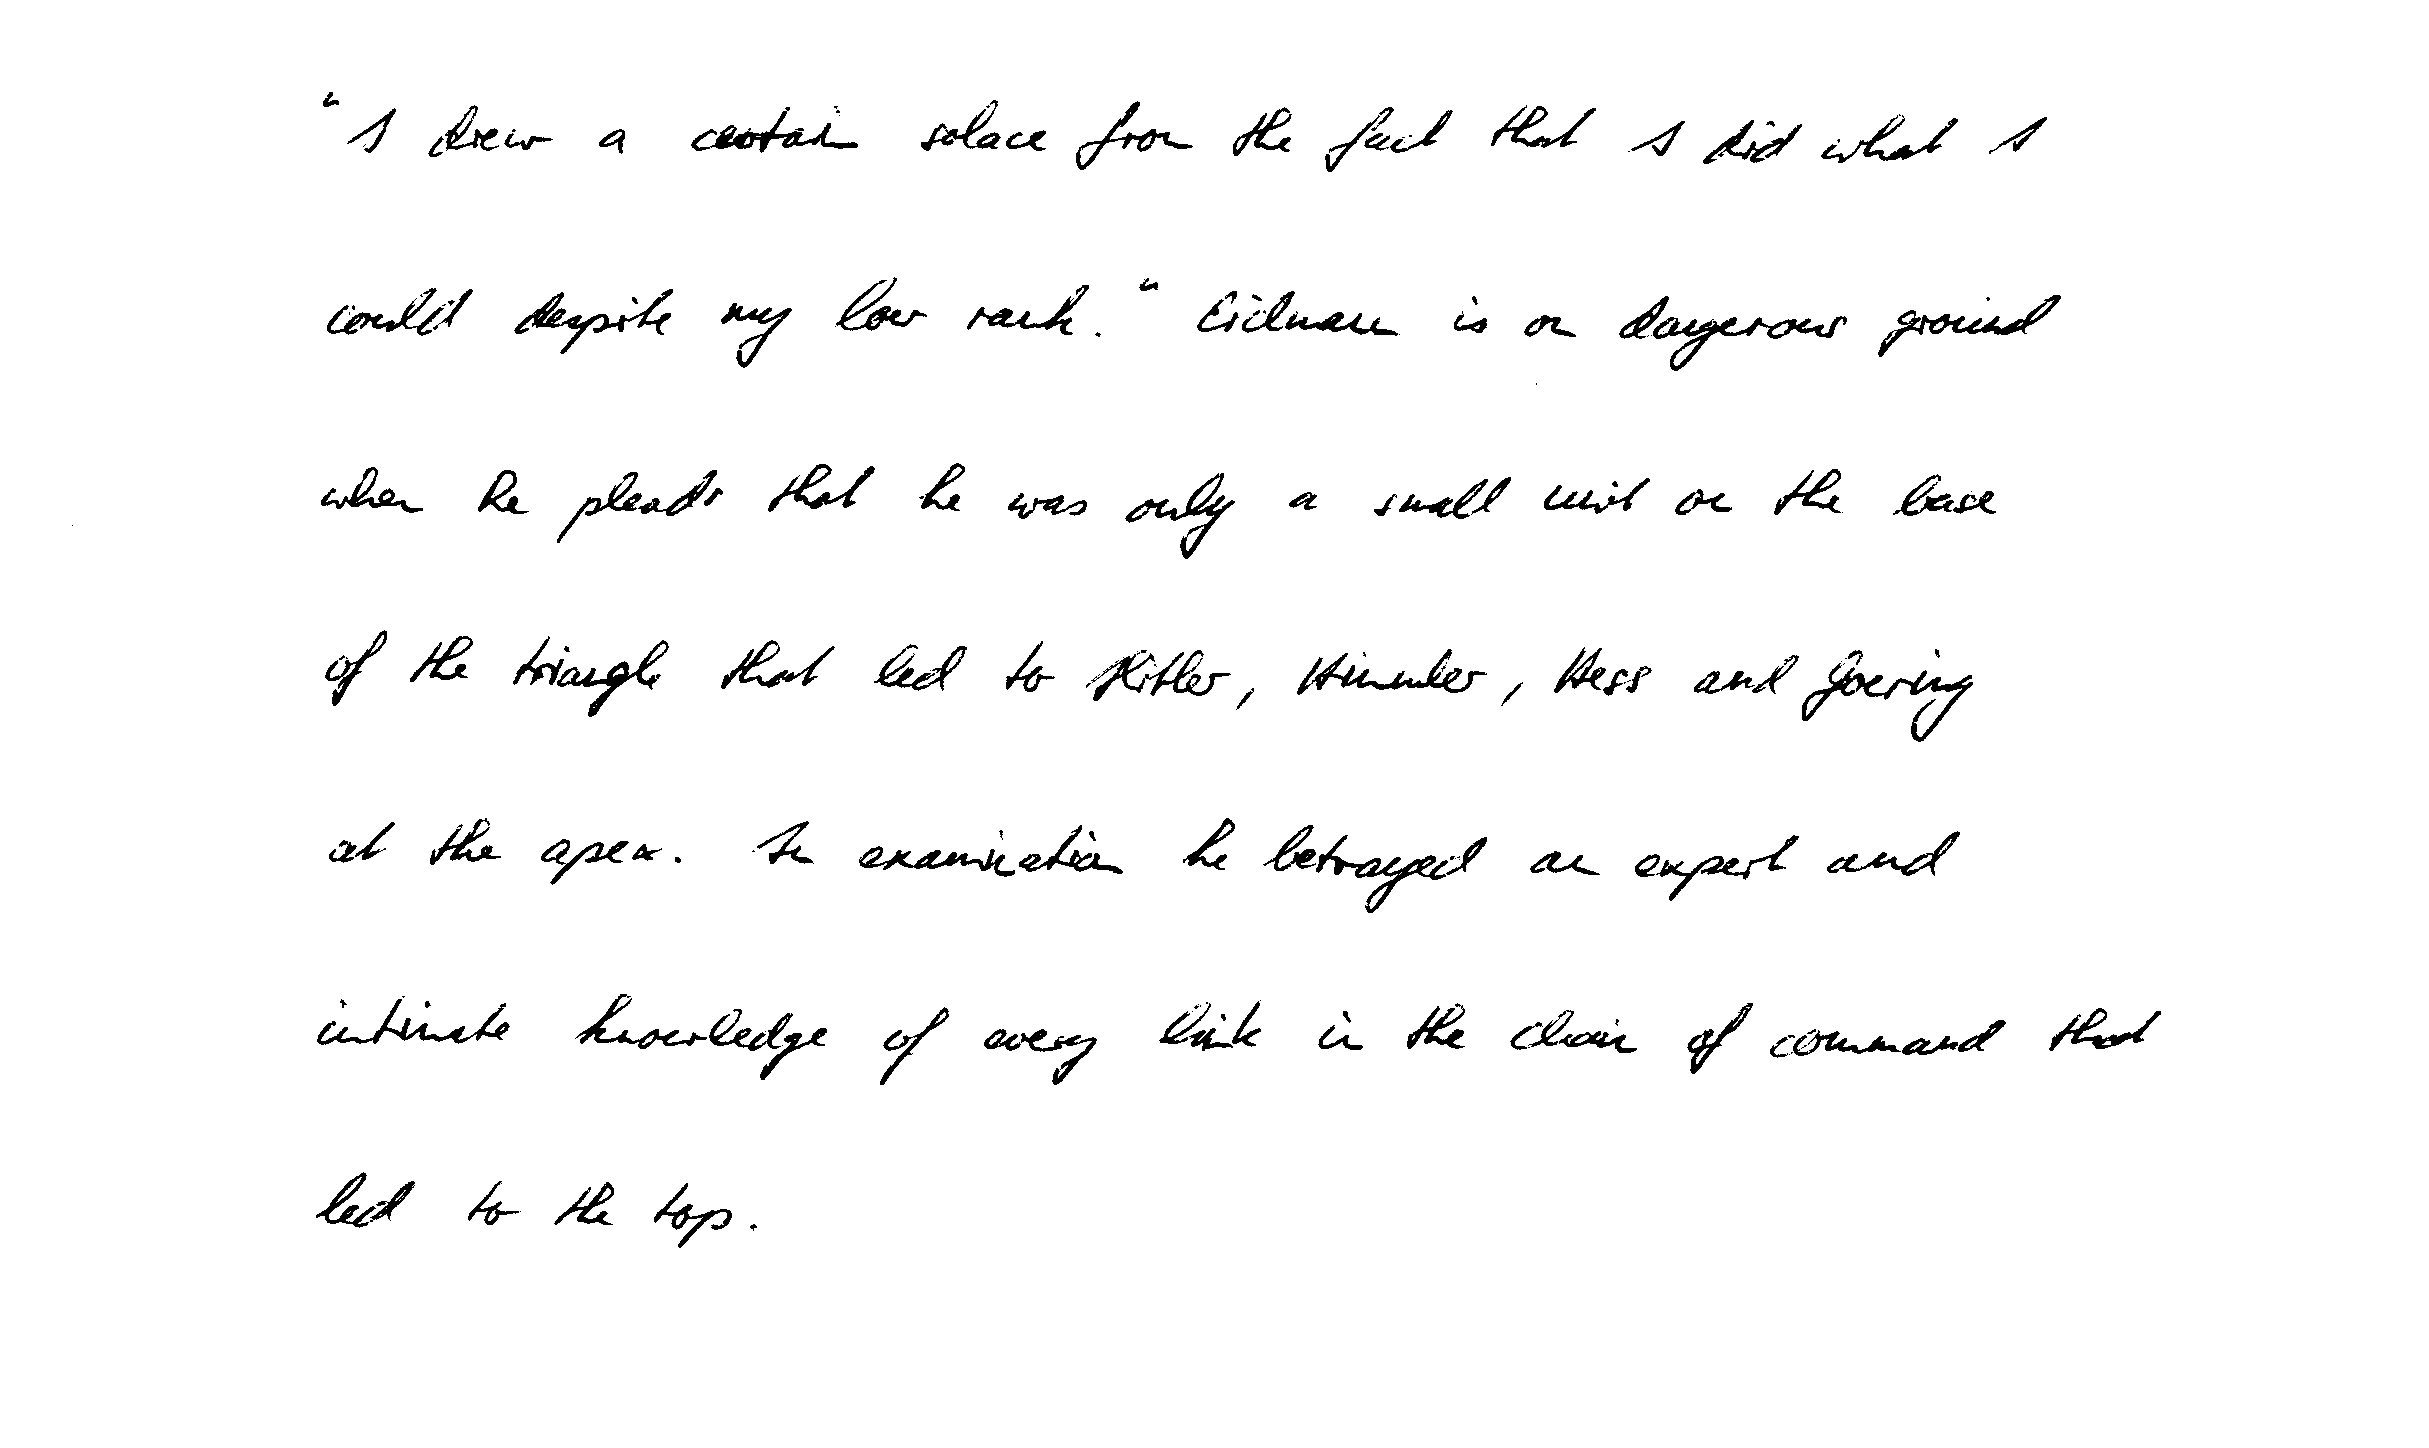 "I drew a certain solace from the fact that I did what I
could despite my low rank." Eichmann is on dangerous ground
when he pleads that he was only a small unit on the base
of the triangle that led to Hitler, Himmler, Hess and Goering
at the apex. In examination he betrayed an expert and
intimate knowledge of every link in the chain of command that
led to the top.